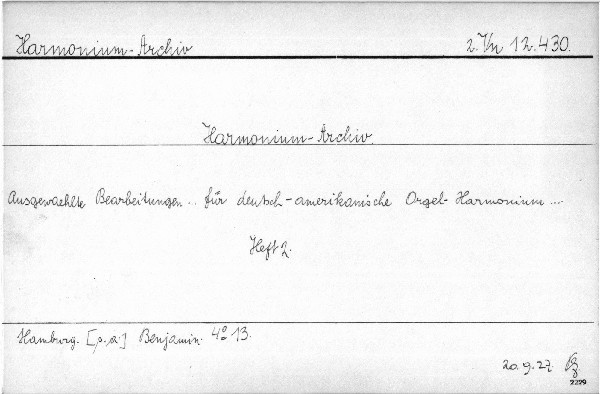 Harmonium-Archiv 2. Vn 12.430.
Harmonium-Archiv.
Ausgewaehlte Bearbeitungen... für deutsch-amerikanische Orgel-Harmonium....
Heft 2.
Hamburg. [s.a.] Benjamin. 4° 13.
20.9.27.
2229